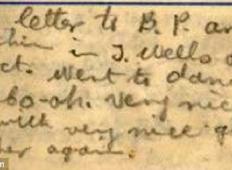 letter to B. P. an
him in T. Wells
ct. Went to dan
bo-oh. Very nic
with very nice g
her again.